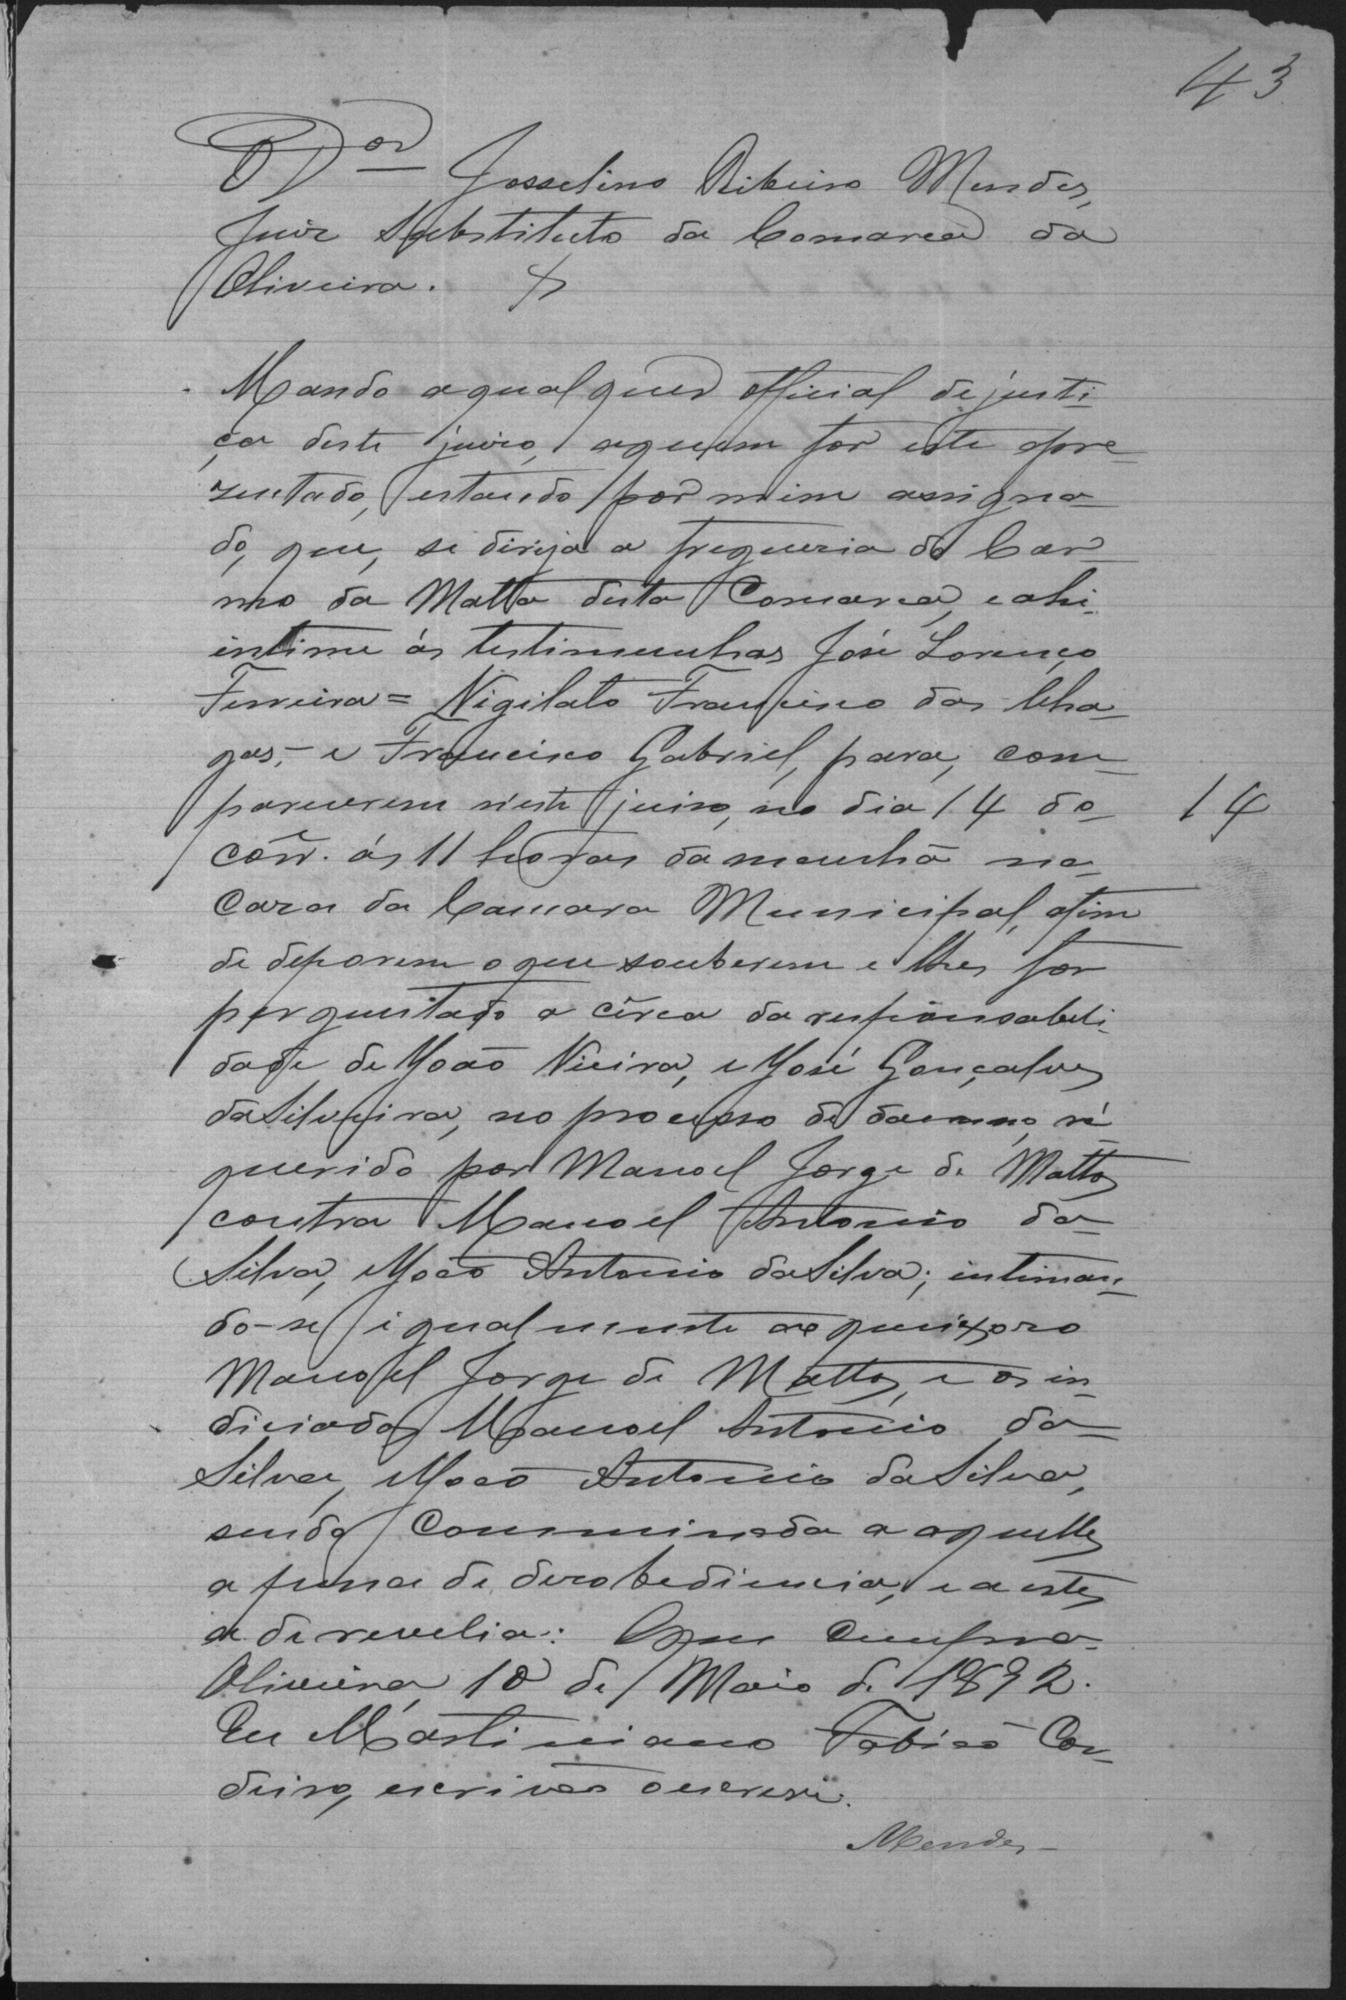 43
O Dor Josselino Ribeiro Mendes,
Juiz Substituto da Comarca da
Oliveira.
Mando a qualquer official de justi-
ça deste juizo, a quem for este apre-
zentado, estando por mim assigna-
do, que, se dirija a freguezia do Car-
mo da Matta desta Comarca, e ahi
intime ás testimunhas José Lorenço
Ferreira = Vigilato Francisco das Cha-
gas, - e Francisco Gabriel, para, com-
parecerem n'este juizo, no dia 14 do
14
corr. ás 11 horas da manhã na
Caza da Camara Municipal, afim
de deporem o que souberem e lhes for
perguntado a cêrca da responsabili-
dade de João Vieira, e José Gonçalves
da Silveira, no processo de damno, re
querido por Manoel Jorge de Mattos
contra Manoel Antonio da
Silva, e João Antonio da Silva; intiman-
do-se igualmente ao queixozo
Manoel Jorge de Mattos, e os in-
diciados Manoel Antonio da
Silva, e João Antonio da Silva,
sendo comminada a aquelles
a pena de dezobediencia, e a estes
a de revelia: O que cumpra.
Oliveira, 10 de Maio de 1892.
Eu Martiniano Fabião Cor-
deiro, escrivão o escrevi.
Mendes